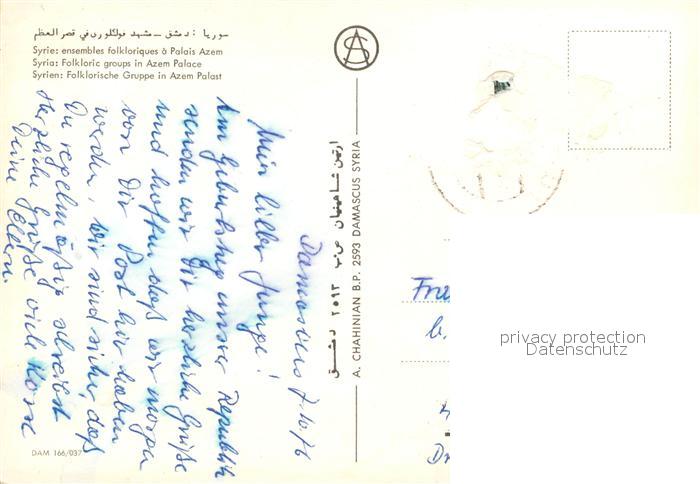 سوريا : دمشق – مشهد فولكلوري في قصر العظم
Syrie: ensembles folkloriques à Palais Azem
Syria: Folkloric groups in Azem Palace
Syrien: Folklorische Gruppe in Azem Palast
AS
Damaskus 7.10.76
Mein lieber Junge!
Am Geburtstag unserer Republik
senden wir Dir herzliche Grüße
und hoffen, daß wir morgen
von Dir Post hier haben
werden. Wir sind sicher, daß
Du regelmäßig schreibst
Herzliche Grüße viele
Deine Eltern.
ص.ب ٢٥٩٣ دمشق
A. CHAHINIAN B.P. 2593 DAMASCUS SYRIA
DAM 166/037
privacy protection
Datenschutz